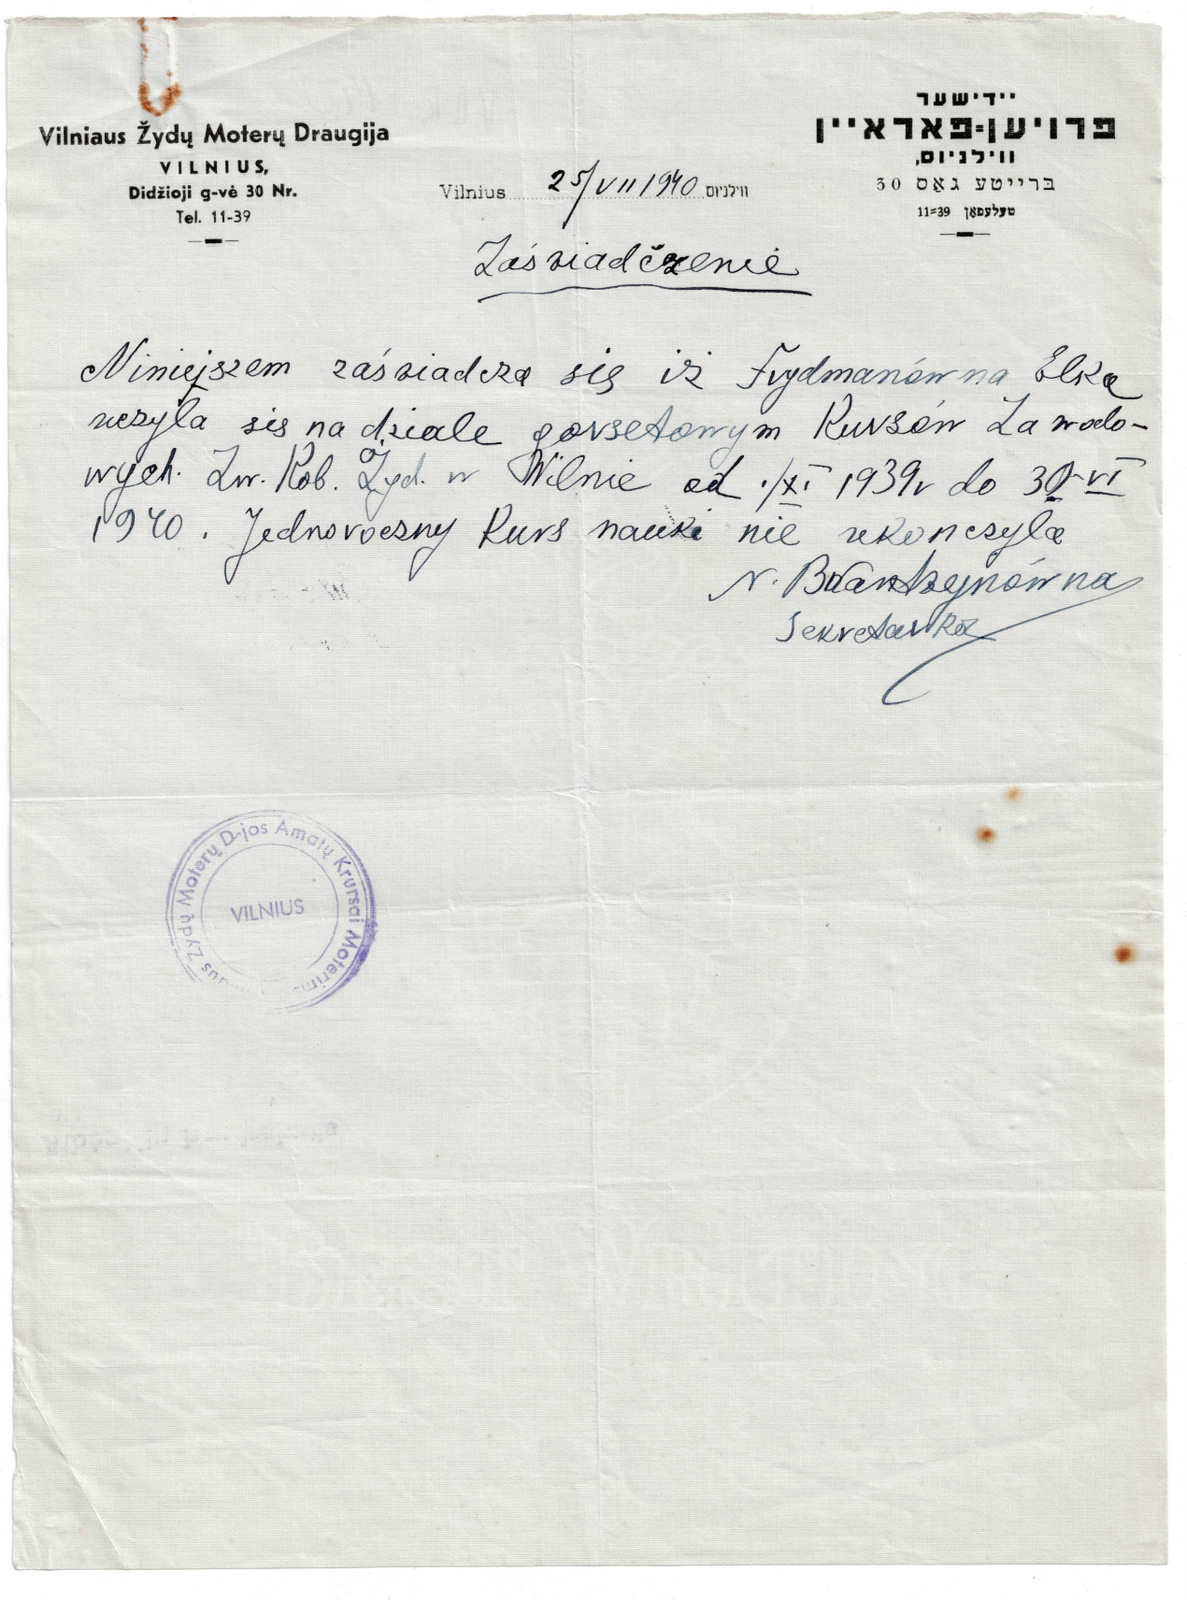 Vilniaus Žydų Moterų Draugija
VILNIUS,
Didžioji g-vė 30 Nr.
Tel. 11-39
יידישער
פרויען-פאראיין
ווילניוס,
ברייטע גאס 30
טעלעפאן 11-39
Vilnius 25/VII 1940 ווילניוס
Zaświadczenie
Niniejszem zaświadcza się iż Frydmanówna Elka
uczyła się na dziale gorsetowym Kursów Zawodo-
wych. Zw. Kob. Żyd. w Wilnie od 1/XI 1939r do 30-VI
1940. Jednoroczny Kurs nauki nie ukończyła
N. Brantzynówna
Sekretarka
Žydų Moterų D-jos Amatų Krursai Moterims
VILNIUS